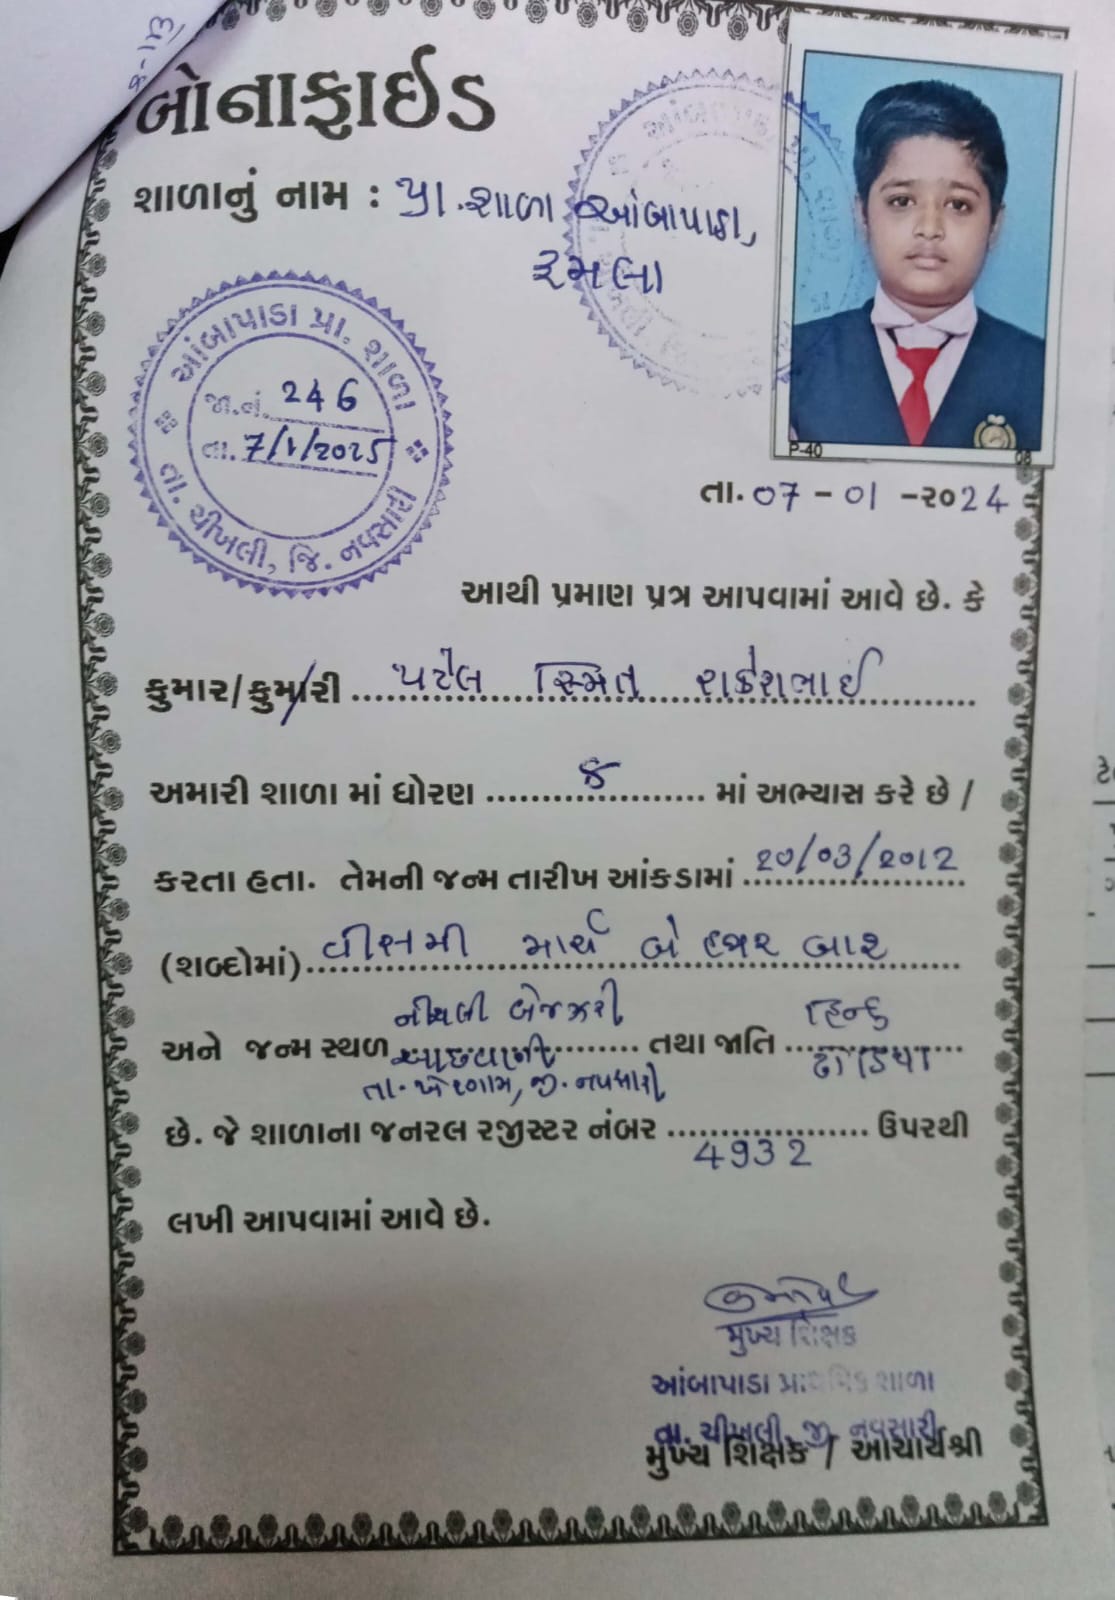 8-173
બોનાફાઈડ
શાળાનું નામ : પ્રા.શાળા આંબાપાડા,
રૂમલા
આંબાપાડા પ્રા. શાળા
જા.નં. 246
તા. 7/1/2025
તા. ચીખલી, જિ. નવસારી
P-40 08
તા. 07 - 01 - ૨૦24
આથી પ્રમાણ પત્ર આપવામાં આવે છે. કે
કુમાર/કુમારી પટેલ સ્મિત રાકેશભાઈ
અમારી શાળા માં ધોરણ ૮ માં અભ્યાસ કરે છે /
કરતા હતા. તેમની જન્મ તારીખ આંકડામાં 20/03/2012
(શબ્દોમાં) વીસમી માર્ચ બે હજાર બાર
અને જન્મ સ્થળ આછવાણી તથા જાતિ હિન્દુ
તા. ખેરગામ, જી. નવસારી ઢોડિયા
છે. જે શાળાના જનરલ રજીસ્ટર નંબર 4932 ઉપરથી
લખી આપવામાં આવે છે.
મુખ્ય શિક્ષક
આંબાપાડા પ્રાથમિક શાળા
તા. ચીખલી, જી. નવસારી
મુખ્ય શિક્ષક / આચાર્યશ્રી